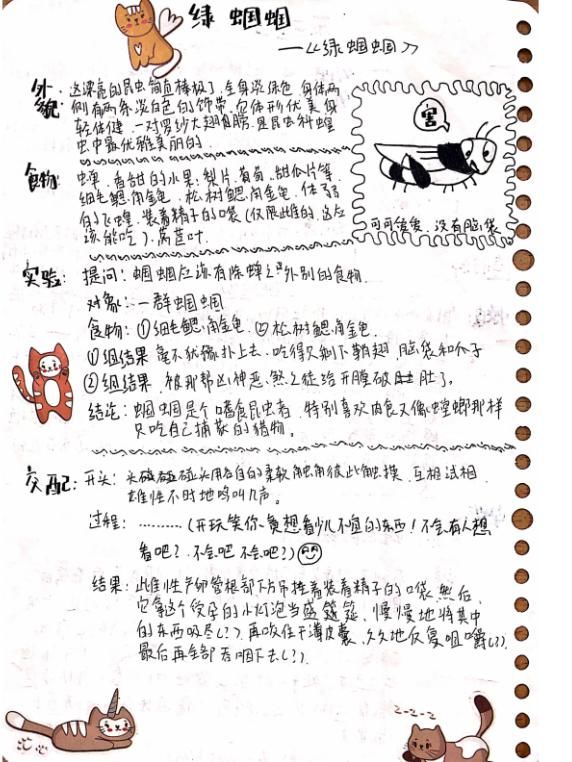 绿蝈蝈
—《绿蝈蝈》
外貌:这漂亮的昆虫简直棒极了,全身淡绿色,身体两
侧有两条淡白色的饰带,它体形优美,身
轻体健,一对罗纱大翅膀,是昆虫科蝗
虫中最优雅美丽的.
害
可可爱爱,没有脑袋
食物:蝉.香甜的水果:梨片.葡萄.甜瓜片等
细毛鳃角金龟.松树鳃角金龟.体弱
的飞蝗.装着精子的口袋(仅限雌的.这应
该能吃).莴苣叶.
实验:提问:蝈蝈应该有除蝉之外别的食物
对象:一群蝈蝈
食物:①细毛鳃角金龟.②松树鳃角金龟.
①组结果 毫不犹豫扑上去.吃得只剩下鞘翅.脑袋和爪子
②组结果.被那帮凶神恶煞之徒给开膛破肚了。
结论:蝈蝈是个嗜食昆虫者,特别喜欢肉食又像螳螂那样
只吃自己捕获的猎物。
交配:开头:头碰头用各自的柔软触角彼此触摸.互相试相
雄性不时地鸣叫几声。
过程:………(开玩笑你真想看少儿不宜的东西!不会有人想
看吧?不会吧不会吧?)
结果:此雌性产卵管根部下方吊挂着装着精子的口袋.然后
它拿这个受孕的小灯泡当盛筵,慢慢地将其中
的东西吸尽(?).再咬住干薄皮囊,久久地反复咀嚼(?).
最后再全部吞咽下去(?).
z-z-z